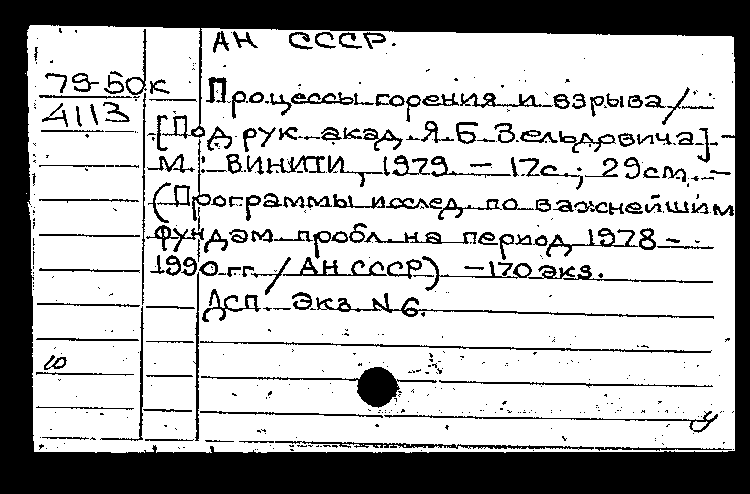 АН СССР.
79-50к
4113
Процессы горения и взрыва/
[Под рук. акад. Я.Б. Зельдовича]. -
М.: ВИНИТИ, 1979. - 17с.; 29см. -
(Программы исслед. по важнейшим
фундам. пробл. на период 1978-
1990гг. / АН СССР) -170экз.
Дсп. Экз. N 6.
ю
у